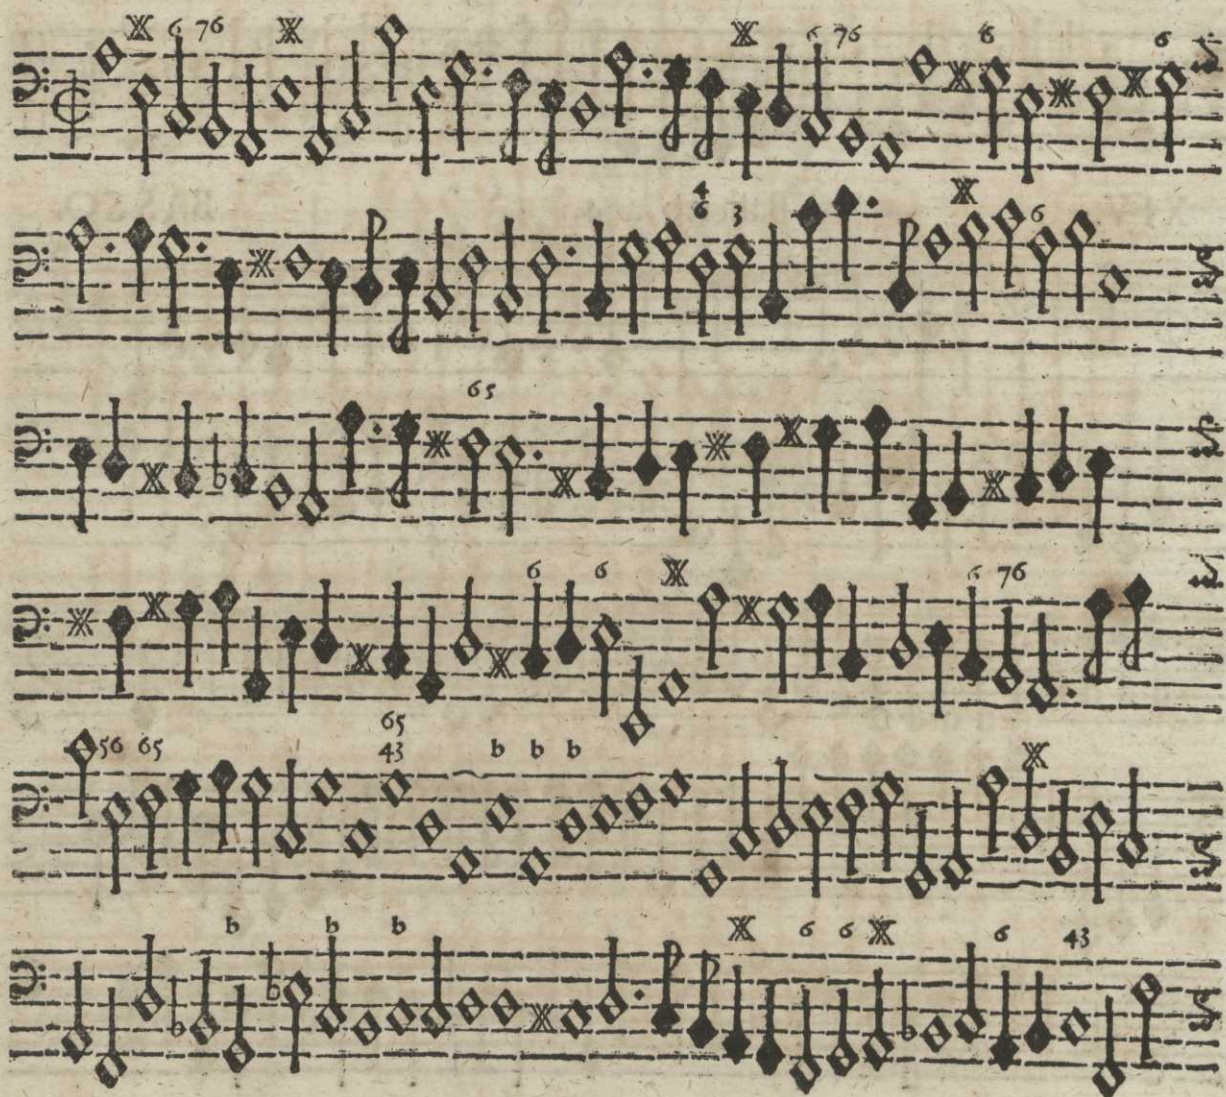 6 76 6 76 6 6
4
6 3 6
65
6 6 6 76
65
56 65 43 b b b
b b b 6 6 6 43